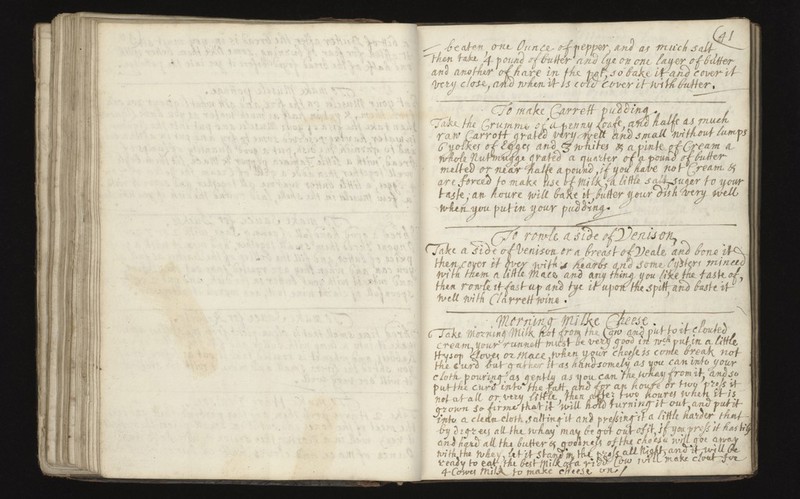 41
beaten, one Ounce of pepper, and as much salt
then take 4 pound of butter and lye on one layer of butter
and another of hare in the pot, so bake it and cover it
very close, and when it is cold cover it with butter.
To make Carrett pudding.
Take the Crumme of a penny loafe, and halfe as much
raw Carrott grated very well and small without lumps
6 yolkes of egges and 3 whites & a pinte of Cream a
whole Nutmegge grated a quarter of a pound of butter
melted or near halfe a pound, if you have not Cream &
are forced to make use of milk, a little salt, suger to your
taste, an houre will bake it, buttor your dish very well
when you put in your pudding.
To rowle a side of Venison,
Take a side of Venison or a breast of Veale and bone it
then cover it over with hearbs and some Oysters minced
with them a little Mace and any thing you like the taste of,
then rowle it fast up and tye it upon the spitt, and baste it
well with Clarrett wine.
Morning Milke Cheese.
Take Morning Milk hot from the Cow and put to it clouted
cream, your runnett must be very good in wch put in a little
Hysop Cloves or Mace, when your cheese is come break not
the curd but gather it as handsomely as you can into your
cloth pouring as gently as you can the whey from it, and so
put the curd into the fatt, and for an houre or two press it
not at all or very little, then after two houres when it is
grown so firme that it will hold turning it out, and put it
into a clean cloth, salting it and pressing it a little harder that
by degrees all the whay may be got out of it, if you press it hastily
and hard all the butter & goodness of the cheese will goe away
with the whey, let it stand in the press all Night, and it will be
ready to eat, the best Milk of a Cow will make
4 Cowes Milk to make cheese on